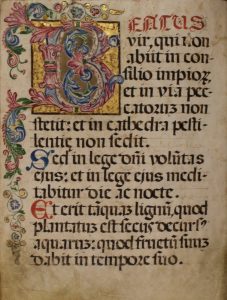 BEATUS
vir, qui non
abiit in con
silio impior,
et in via pec
catorum non
stetit: et in cathedra pesti
lentie non sedit.
Sed in lege dñi volũtas
ejus: et in lege ejus medi
tabitur die ac nocte.
Et erit tãquaz lignũ, quod
plantatus est secus decurs9
aquarum: quod fructũ suuz
dabit in tempore suo.